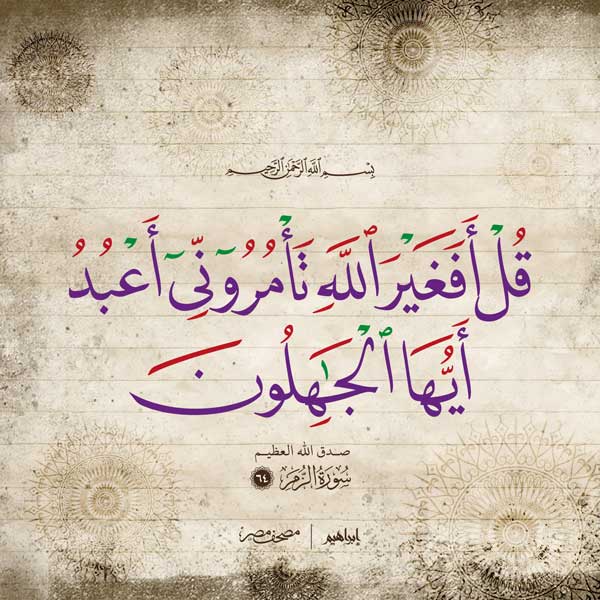 بِسْمِ ٱللَّهِ ٱلرَّحْمَٰنِ ٱلرَّحِيمِ
قُلْ أَفَغَيْرَ ٱللَّهِ تَأْمُرُوٓنِّىٓ أَعْبُدُ
أَيُّهَا ٱلْجَٰهِلُونَ
صدق الله العظيم
سُورَةُ الزُّمَرِ ٦٤
إبراهيم | مصحف مصر